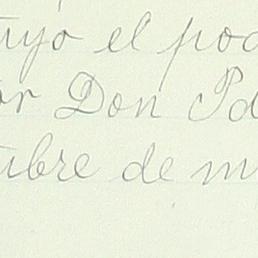 tuyo el pod
or Don Pd
tubre de m